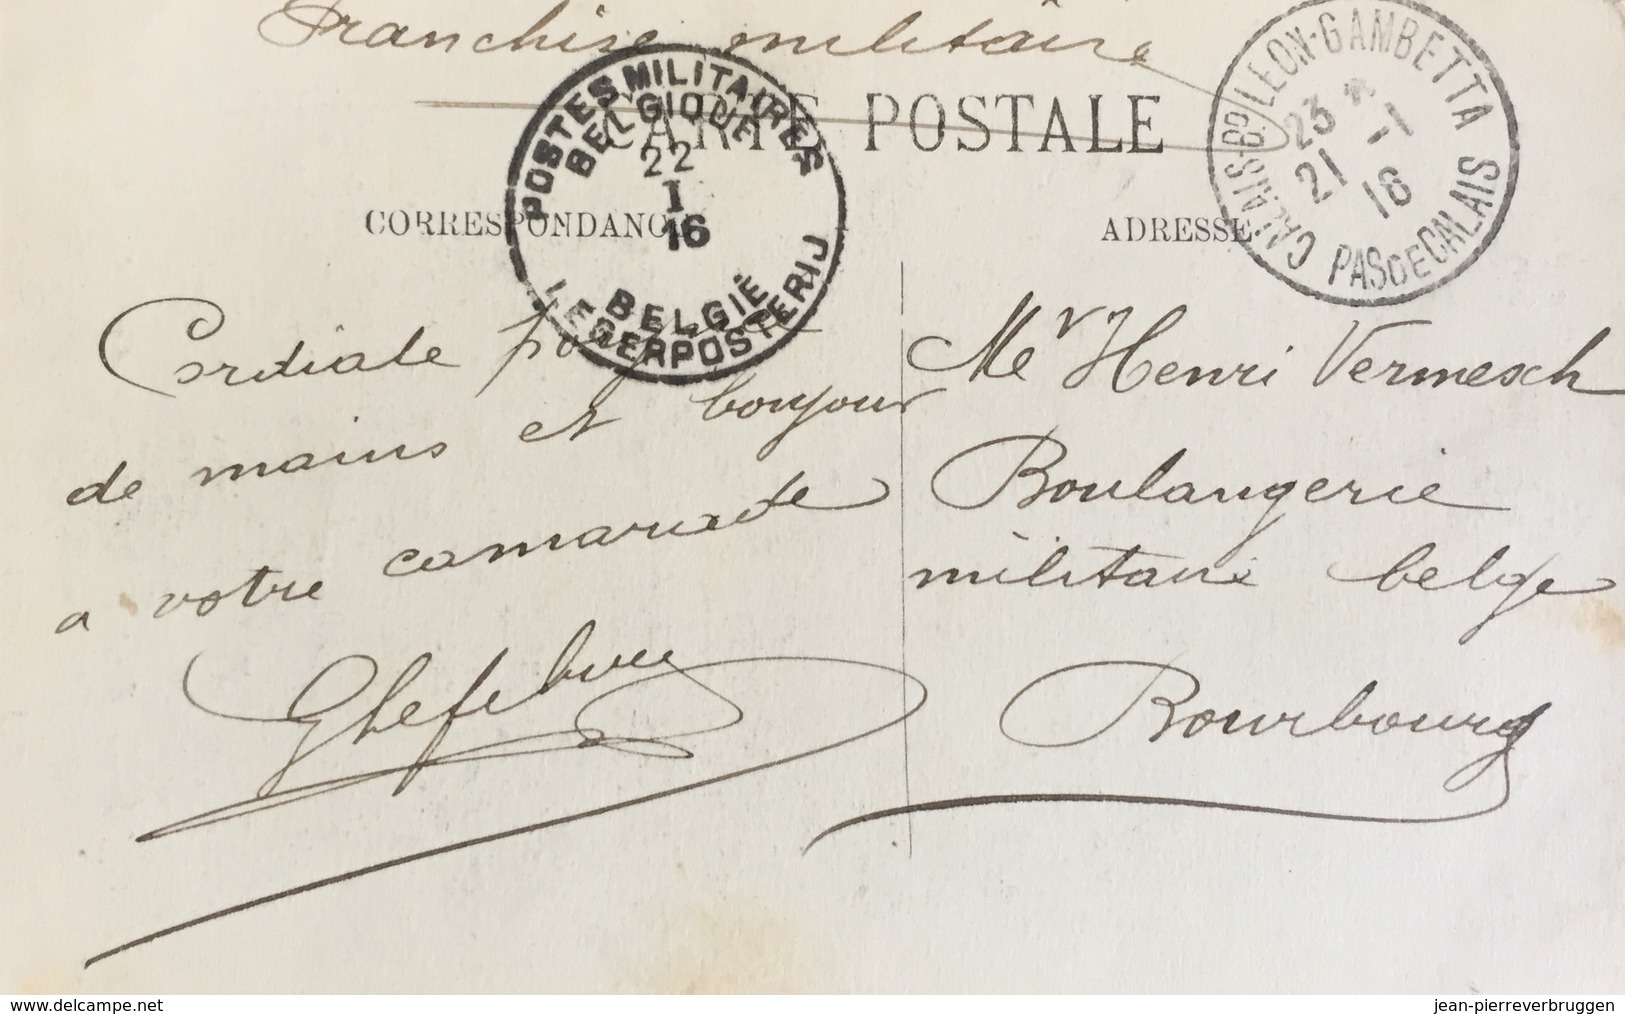 Franchise militaire
CARTE POSTALE
POSTES MILITAIRES
BELGIQUE
22
I
16
BELGIË
LEGERPOSTERIJ
CALAIS-Bd LEON-GAMBETTA
23 * -1
21 16
PAS DE CALAIS
CORRESPONDANCE
ADRESSE
Cordiale
de mains et bonjour
a votre camarade
GLefebvre
Mr Henri Vermesch
Boulangerie
militaire belge
Bourbourg
www.delcampe.net
jean-pierreverbruggen